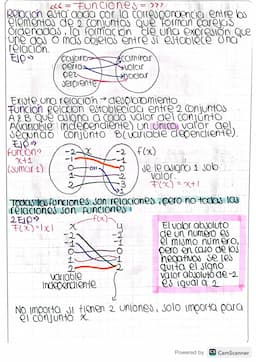 «« = Funciones = »»
Relación esta dada por la correspondencia entre los
elementos de 2 conjuntos que forman parejas
ordenadas, la formación de una expresión que
une dos o más objetos entre sí establece una
relación.
Ejp
pájaro
perro
pez
serpiente
caminar
volar
nadar
Existe una relación → desplazamiento
Función relación establecida entre 2 conjuntos
A y B que asigna a cada valor del conjunto
A (variable independiente) un único valor del
segundo conjunto B (variable dependiente).
Ejp
función
x+1
(sumar 1)
x
f(x)
-2
-1
0
1
2
se le asigna 1 solo
valor.
F(x) = x+1
Todas las funciones son relaciones, pero no todas las
relaciones son funciones
2 Ejp
F(x)=|x|
x
f(x)
y
-2
-1
0
1
2
variable
independiente
El valor absoluto
de un número es
el mismo número,
pero en caso de los
negativos se les
quita el signo
valor absoluto de -2
es igual a 2
No importa si tienen 2 uniones, solo importa para
el conjunto x.
Powered by CamScanner